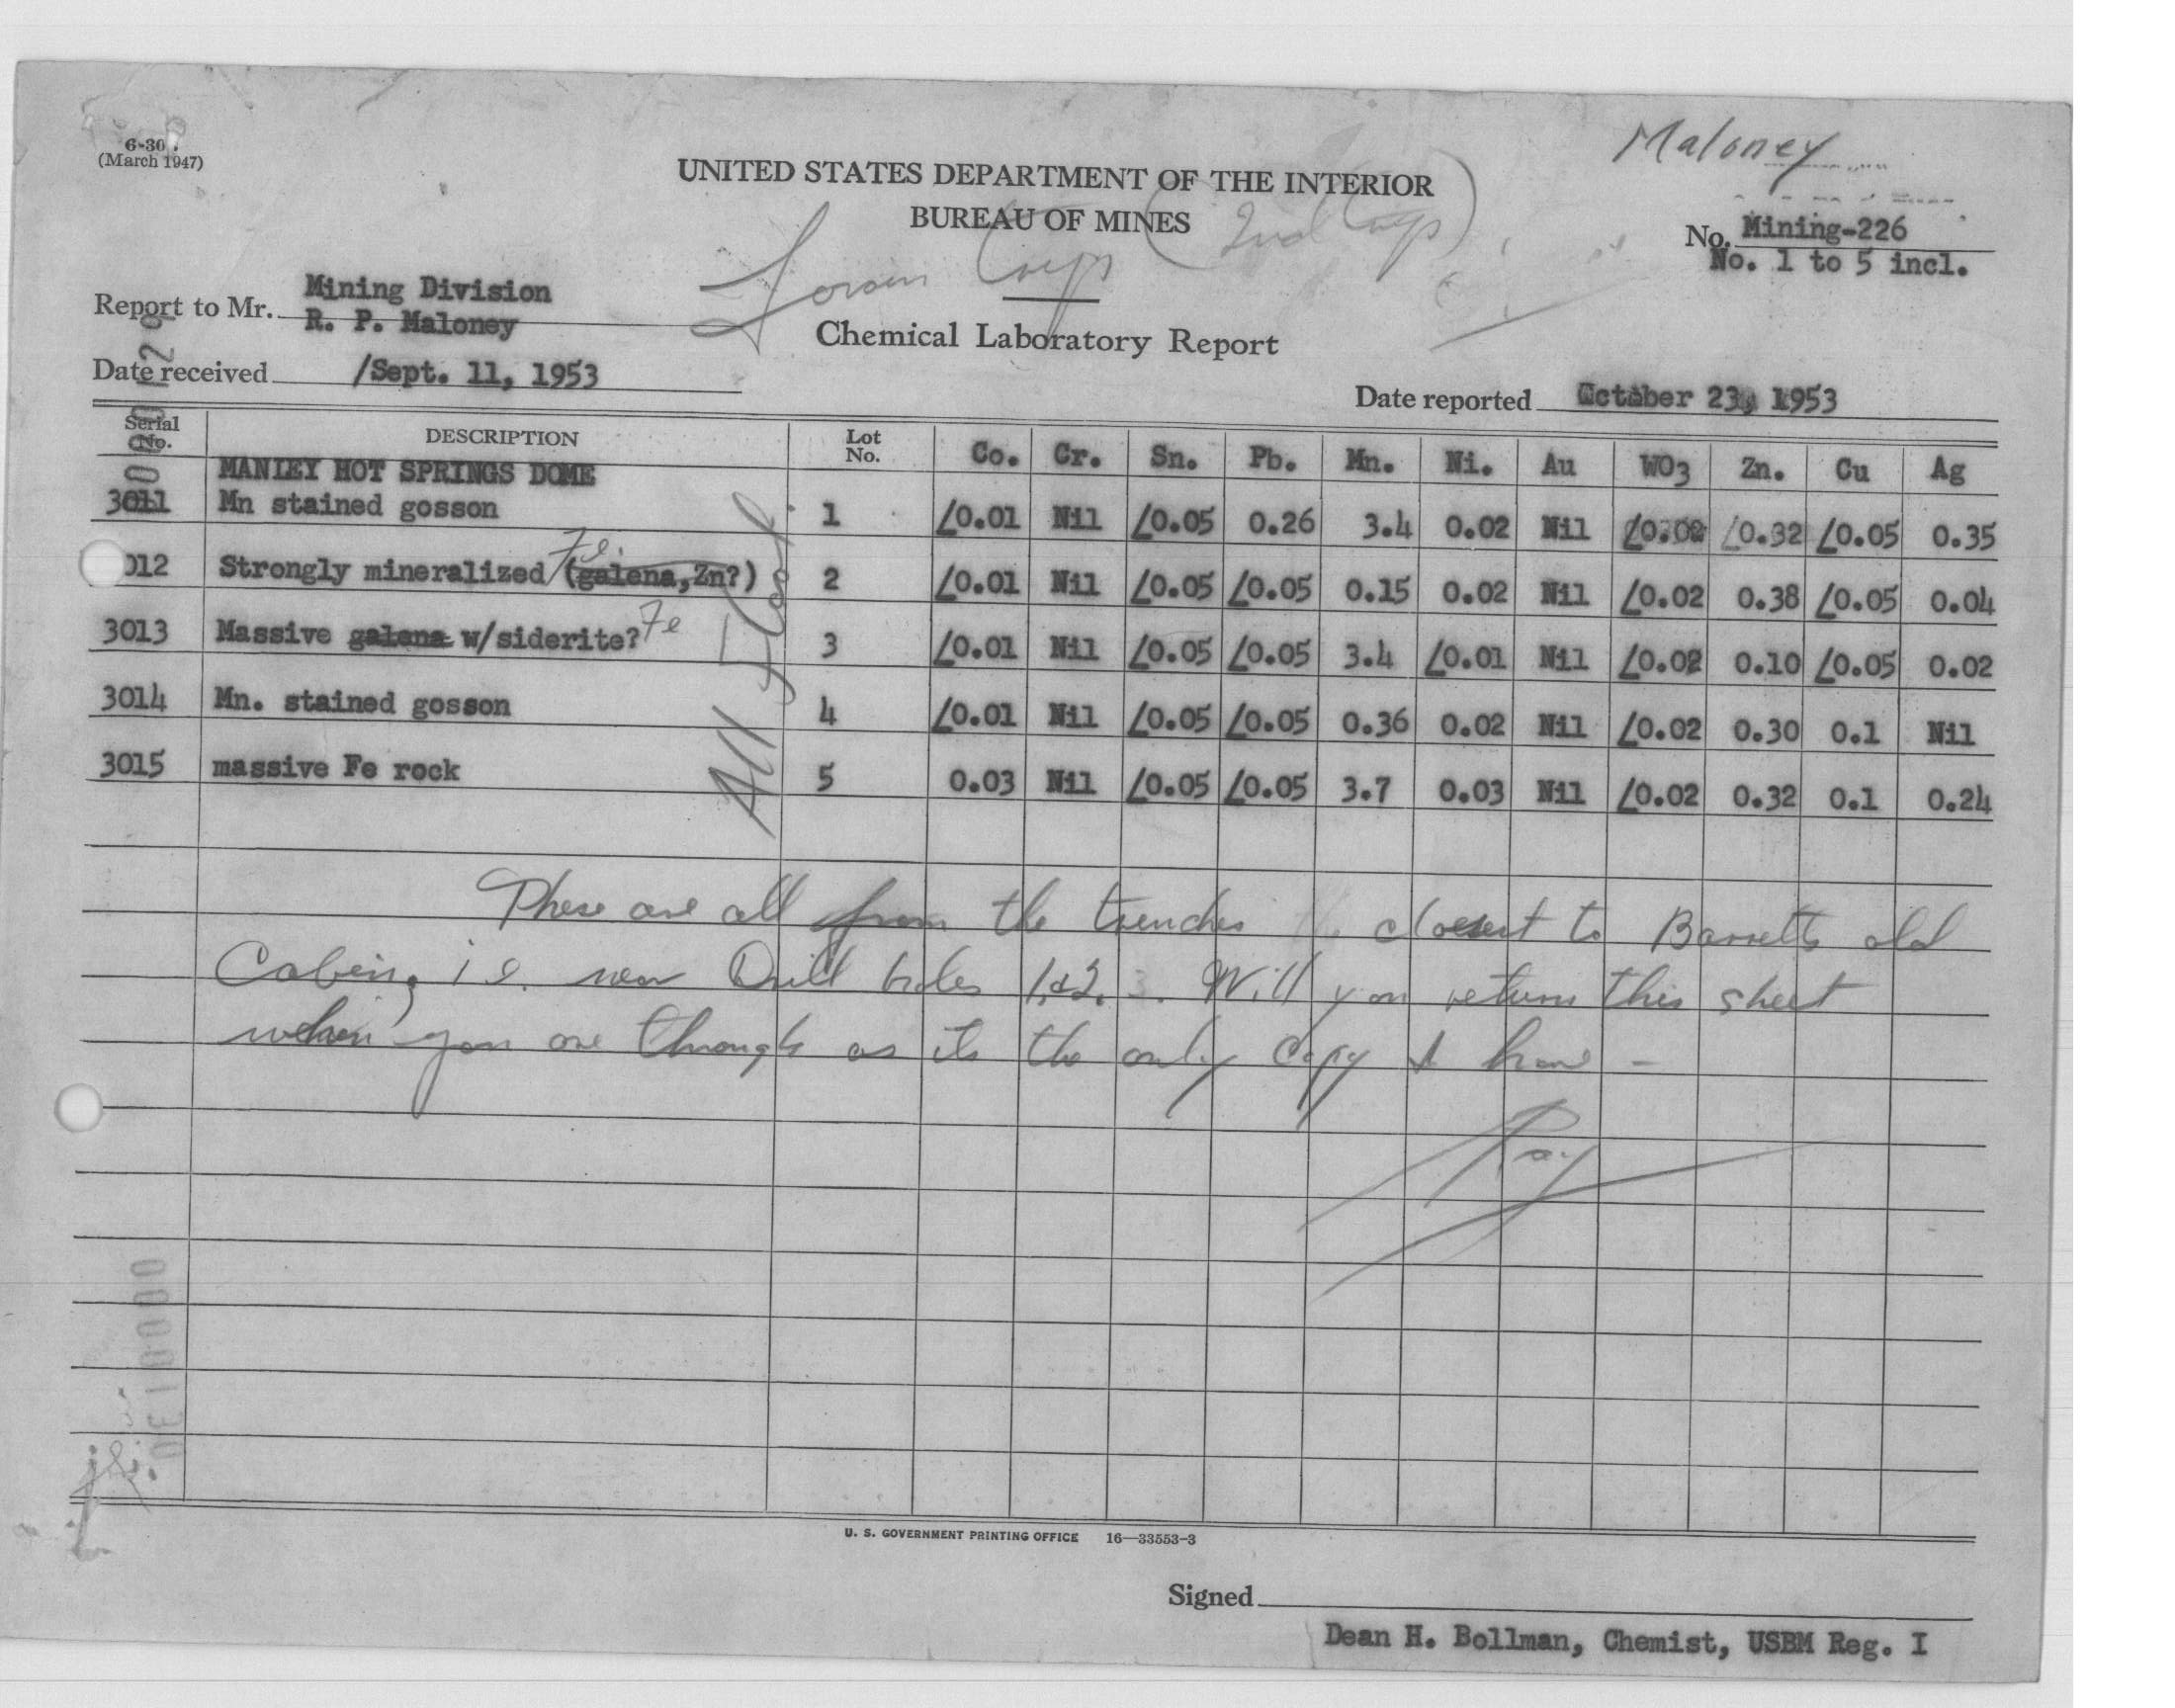 6-30
(March 1947)
Maloney
UNITED STATES DEPARTMENT OF THE INTERIOR
BUREAU OF MINES
(2nd Copy)
Copy
No. Mining-226
No. 1 to 5 incl.
Report to Mr. Mining Division
R. P. Maloney
Chemical Laboratory Report
Date received /Sept. 11, 1953
Date reported October 23, 1953
Serial No. DESCRIPTION Lot No. Co. Cr. Sn. Pb. Mn. Ni. Au WO3 Zn. Cu Ag
MANLEY HOT SPRINGS DOME
3011 Mn stained gosson 1 ∠0.01 Nil ∠0.05 0.26 3.4 0.02 Nil ∠0.02 ∠0.32 ∠0.05 0.35
Fe.
012 Strongly mineralized (galena,Zn?) 2 ∠0.01 Nil ∠0.05 ∠0.05 0.15 0.02 Nil ∠0.02 0.38 ∠0.05 0.04
3013 Massive galena w/siderite? Fe 3 ∠0.01 Nil ∠0.05 ∠0.05 3.4 ∠0.01 Nil ∠0.02 0.10 ∠0.05 0.02
3014 Mn. stained gosson 4 ∠0.01 Nil ∠0.05 ∠0.05 0.36 0.02 Nil ∠0.02 0.30 0.1 Nil
3015 massive Fe rock 5 0.03 Nil ∠0.05 ∠0.05 3.7 0.03 Nil ∠0.02 0.32 0.1 0.24
All Float
These are all from the trenches closest to Barretts old
Cabin, i.e. near Drill holes 1,&2, 3. Will you return this sheet
when you are through as its the only copy I have -
Ray
U. S. GOVERNMENT PRINTING OFFICE 16—33553-3
Signed
Dean H. Bollman, Chemist, USBM Reg. I